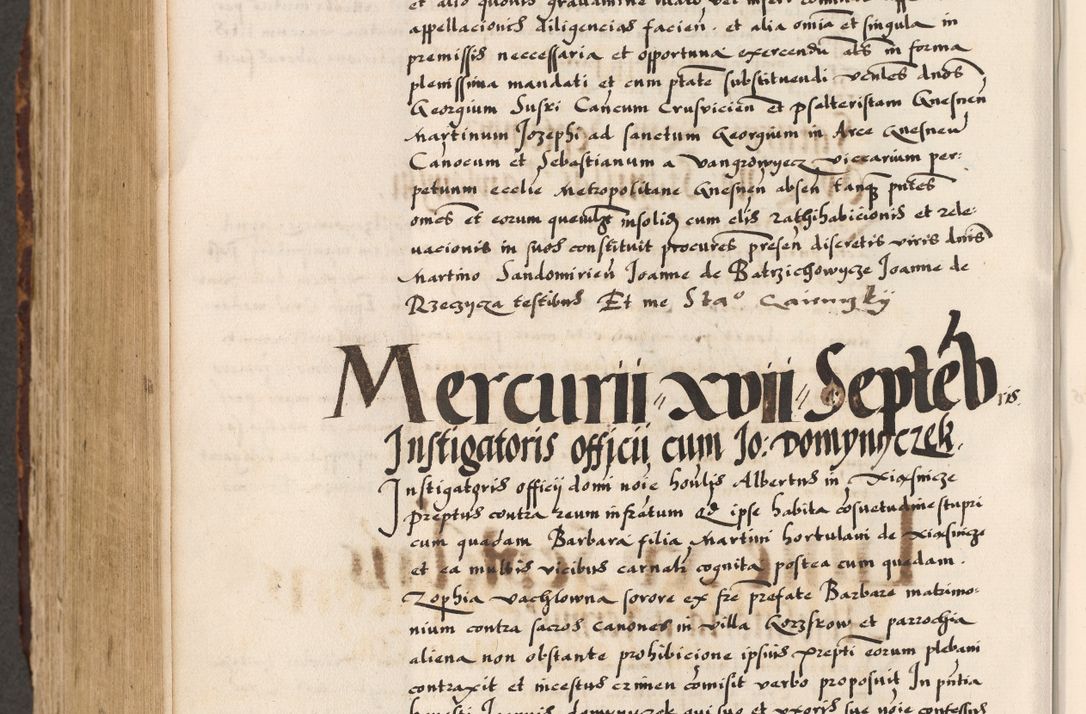 et alio quovis gravamine
appellacionis diligencias facien. et alia omia et singula in
premissis neccessaria et opportuna exercendu als in forma
plenissima mandati et cum ptate substituendi venles dnos
Georgium Suski Cancum Crusvicien et psalteristam Gnesnen
Martinum Jozephi ad sanctum Georgium in Arce Gnesnen
Canocum et Sebastianum a Vangrowyecz viccarium per:
petuum ecclie Metropolitane Gnesnen absen tanq pntes
omes et eorum quemlibet insolid cum clis rathihabicionis et rele-
vacionis in suos constituit procures presen discretis viris dnis
Martino Sandomirien Joanne de Batrzichowycze Joanne de
Rzeczycza testibus Et me Stao
Mercurii xvii Septebris
Instigatoris officii cum Jo: Domynyczek.
Instigatoris officij domi noie honlis Albertus in Xiassnicze
preptus contra reum infratum Qd ipse habita cosuetudine stupri
cum quadam Barbara filia Martini hortulani de Xiassnicze
et ea multis vicibus carnalr cognita postea cum quadam
Zophia vachlowna sorore ex fre prefate Barbare matrimo-
nium contra sacros canones in villa Gorzskow et parrochia
aliena non obstante prohibicione ipsius prepti eorum plebani
contraxit et incestus crimen comisit verbo proposuit In pntia
honesti Joannis domynyczek qui suo et uxoris sue noie confessus